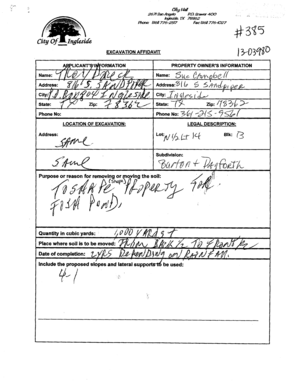 City Hall
2671 San Angelo P.O. Drawer 400
Ingleside, TX 78362
City Of Ingleside
#385
13-03980
EXCAVATION AFFIDAVIT
APPLICANT'S INFORMATION PROPERTY OWNER'S INFORMATION
Name: Name: Sue Campbell
Address: 816 S. Sandpiper Address: 816 S Sandpiper
City: Ingleside City: Ingleside
State: TX Zip: 78362 State: TX Zip: 78362
Phone No: Phone No: 361-215-9561
LOCATION OF EXCAVATION: LEGAL DESCRIPTION:
Address: Lot: N½ Lt 14 Blk: 13
Same
Same Subdivision:
Burton + Danforth
Purpose or reason for removing or moving the soil:
To Shape (Shape) Property For
Fish Pond.
Quantity in cubic yards: 1,000 Yards +
Place where soil is to be moved: From Back ½ To Front ½
Date of completion: 2 yrs Depending on Rainfall.
Include the proposed slopes and lateral supports to be used:
4/1